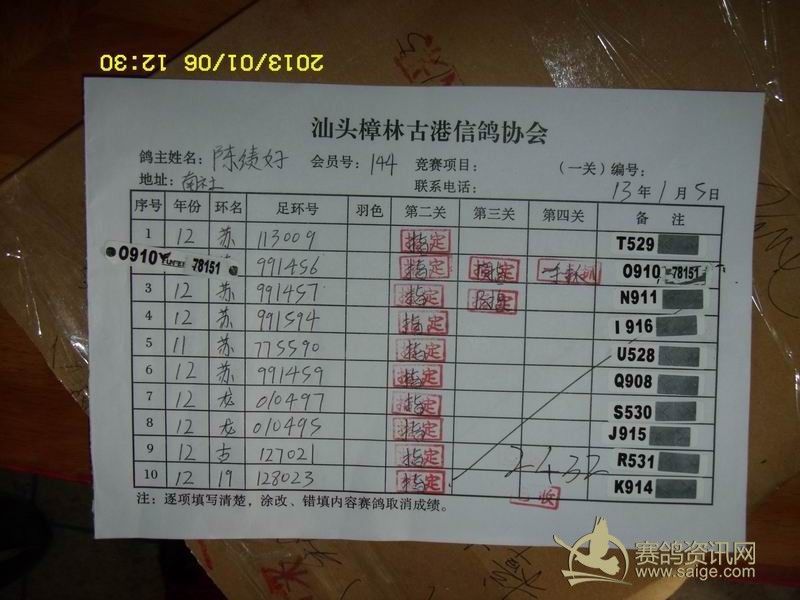 2013/01/06 12:30
汕头樟林古港信鸽协会
鸽主姓名：陈绩好 会员号：144 竞赛项目： （一关）编号：
地址：南社 联系电话： 13年1月5日
序号 年份 环名 足环号 羽色 第二关 第三关 第四关 备 注
1 12 苏 113009 指定 T529
0910 78151 991456 指定 指定 0910 78151
3 12 苏 991457 指定 指定 N911
4 12 苏 991594 指定 I916
5 11 苏 775590 指定 U528
6 12 苏 991459 指定 Q908
7 12 龙 010497 指定 S530
8 12 龙 010495 指定 J915
9 12 古 127021 指定 R531
10 12 19 128023 指定 K914
2432
注：逐项填写清楚，涂改、错填内容赛鸽取消成绩。
赛鸽资讯网
www.saige.com